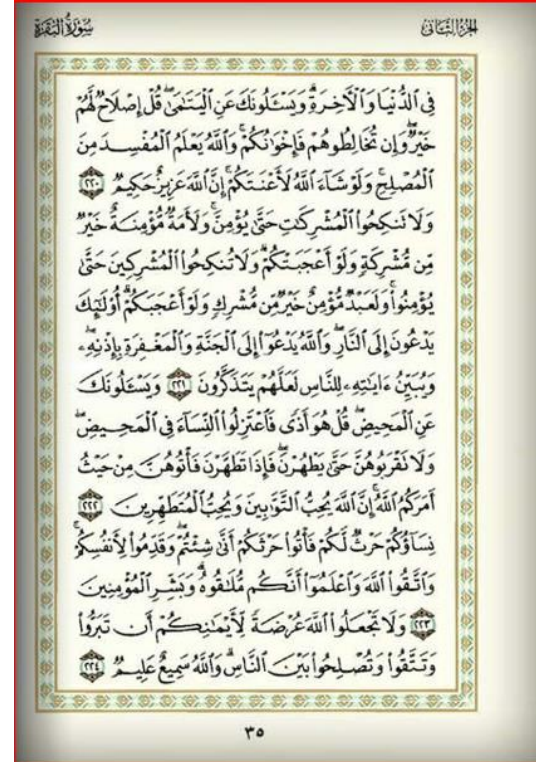 الجزء الثاني
سورة البقرة
فِي ٱلدُّنْيَا وَٱلْأَخِرَةِ ۗ وَيَسْـَٔلُونَكَ عَنِ ٱلْيَتَـٰمَىٰ ۖ قُلْ إِصْلَاحٌ لَّهُمْ
خَيْرٌ ۖ وَإِن تُخَالِطُوهُمْ فَإِخْوَٰنُكُمْ ۚ وَٱللَّهُ يَعْلَمُ ٱلْمُفْسِدَ مِنَ
ٱلْمُصْلِحِ ۚ وَلَوْ شَآءَ ٱللَّهُ لَأَعْنَتَكُمْ ۚ إِنَّ ٱللَّهَ عَزِيزٌ حَكِيمٌ ٢٢٠
وَلَا تَنكِحُوا۟ ٱلْمُشْرِكَـٰتِ حَتَّىٰ يُؤْمِنَّ ۚ وَلَأَمَةٌ مُّؤْمِنَةٌ خَيْرٌ
مِّن مُّشْرِكَةٍ وَلَوْ أَعْجَبَتْكُمْ ۗ وَلَا تُنكِحُوا۟ ٱلْمُشْرِكِينَ حَتَّىٰ
يُؤْمِنُوا۟ ۚ وَلَعَبْدٌ مُّؤْمِنٌ خَيْرٌ مِّن مُّشْرِكٍ وَلَوْ أَعْجَبَكُمْ ۗ أُو۟لَـٰٓئِكَ
يَدْعُونَ إِلَى ٱلنَّارِ ۖ وَٱللَّهُ يَدْعُوٓا۟ إِلَى ٱلْجَنَّةِ وَٱلْمَغْفِرَةِ بِإِذْنِهِۦ ۖ
وَيُبَيِّنُ ءَايَـٰتِهِۦ لِلنَّاسِ لَعَلَّهُمْ يَتَذَكَّرُونَ ٢٢١ وَيَسْـَٔلُونَكَ
عَنِ ٱلْمَحِيضِ ۖ قُلْ هُوَ أَذًى فَٱعْتَزِلُوا۟ ٱلنِّسَآءَ فِي ٱلْمَحِيضِ ۖ
وَلَا تَقْرَبُوهُنَّ حَتَّىٰ يَطْهُرْنَ ۖ فَإِذَا تَطَهَّرْنَ فَأْتُوهُنَّ مِنْ حَيْثُ
أَمَرَكُمُ ٱللَّهُ ۚ إِنَّ ٱللَّهَ يُحِبُّ ٱلتَّوَّٰبِينَ وَيُحِبُّ ٱلْمُتَطَهِّرِينَ ٢٢٢
نِسَآؤُكُمْ حَرْثٌ لَّكُمْ فَأْتُوا۟ حَرْثَكُمْ أَنَّىٰ شِئْتُمْ ۖ وَقَدِّمُوا۟ لِأَنفُسِكُمْ ۚ
وَٱتَّقُوا۟ ٱللَّهَ وَٱعْلَمُوٓا۟ أَنَّكُم مُّلَـٰقُوهُ ۗ وَبَشِّرِ ٱلْمُؤْمِنِينَ
٢٢٣ وَلَا تَجْعَلُوا۟ ٱللَّهَ عُرْضَةً لِّأَيْمَـٰنِكُمْ أَن تَبَرُّوا۟
وَتَتَّقُوا۟ وَتُصْلِحُوا۟ بَيْنَ ٱلنَّاسِ ۗ وَٱللَّهُ سَمِيعٌ عَلِيمٌ ٢٢٤
٣٥